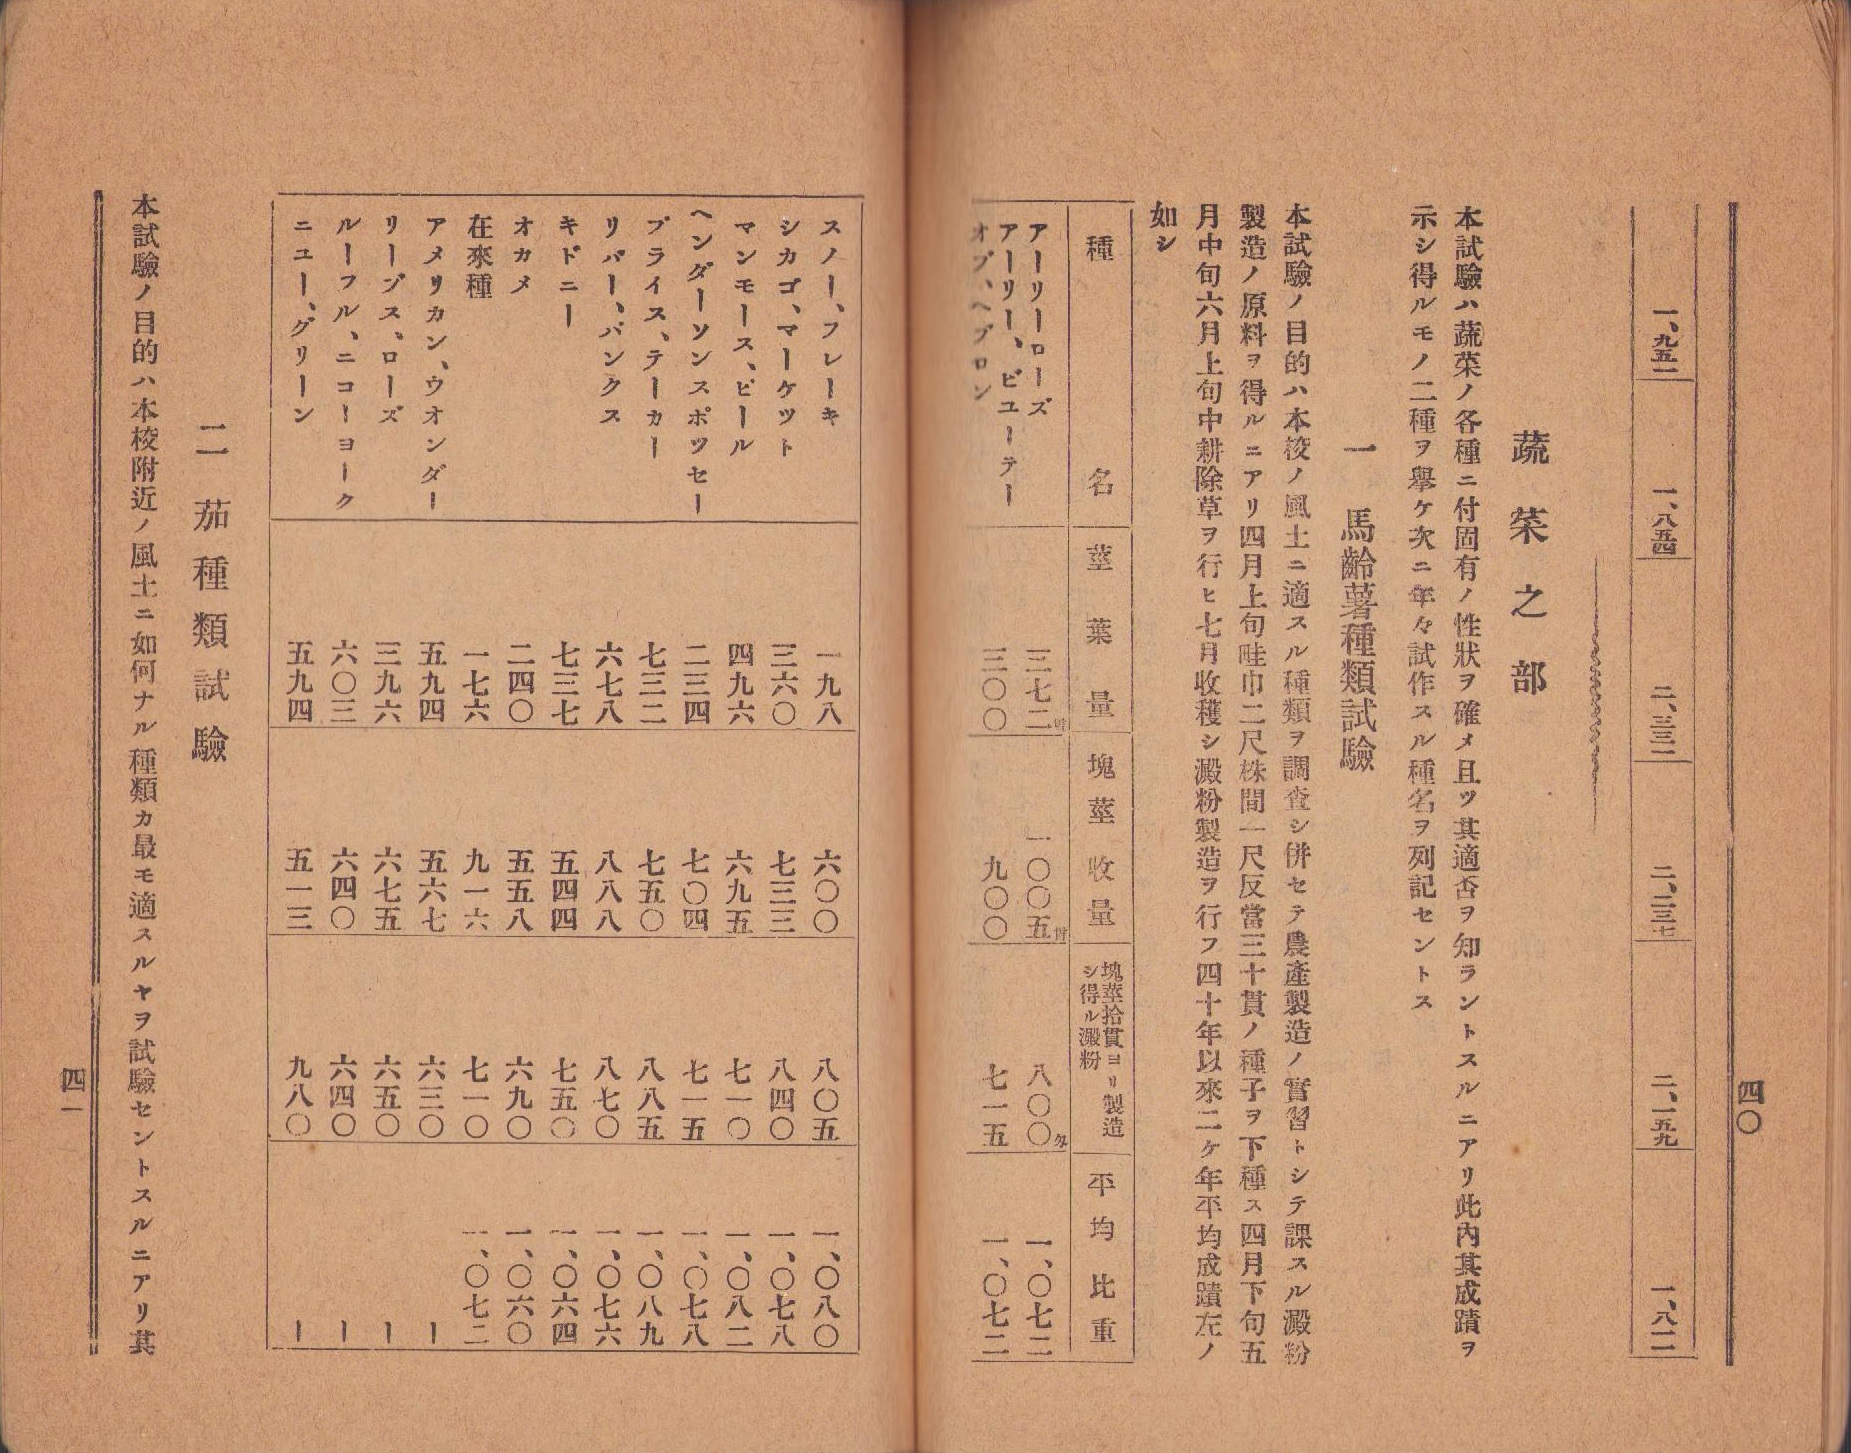 四〇
一、九五一
一、八五四
二、三三一
二、二三七
二、一五九
一、八一一
蔬菜之部
本試驗ハ蔬菜ノ各種ニ付固有ノ性狀ヲ確メ且ツ其適否ヲ知ラントスルニアリ此內其成蹟ヲ
示シ得ルモノ二種ヲ舉ケ次ニ年々試作スル種名ヲ列記セントス
一 馬齡薯種類試驗
本試驗ノ目的ハ本校ノ風土ニ適スル種類ヲ調査シ併セテ農產製造ノ實習トシテ課スル澱粉
製造ノ原料ヲ得ルニアリ四月上旬畦巾二尺株間一尺反當三十貫ノ種子ヲ下種ス四月下旬五
月中旬六月上旬中耕除草ヲ行ヒ七月收穫シ澱粉製造ヲ行フ四十年以來二ケ年平均成蹟左ノ
如シ
種名 莖葉量 塊莖收量 塊莖拾貫ヨリ製造シ得ル澱粉 平均比重
アーリーローズ 三七二 一〇〇五 八〇〇匁 一、〇七二
アーリー、ビユーテー
オブ、ヘブロン 三〇〇 九〇〇 七一五 一、〇七二
スノー、フレーキ 一九八 六〇〇 八〇五 一、〇八〇
シカゴ、マーケツト 三六〇 七三三 八四〇 一、〇七八
マンモース、ピール 四九六 六九五 七一〇 一、〇八二
ヘンダーソンスポツセー 二三四 七〇四 七一五 一、〇七八
ブライス、テーカー 七三二 七五〇 八八五 一、〇八九
リバー、バンクス 六七八 八八八 八七〇 一、〇七六
キドニー 七三七 五四四 七五〇 一、〇六四
オカメ 二四〇 五五八 六九〇 一、〇六〇
在來種 一七六 九一六 七一〇 一、〇七二
アメリカン、ウオンダー 五九四 五六七 六三〇 ー
リーブス、ローズ 三九六 六七五 六五〇 ー
ルーフル、ニコーヨーク 六〇三 六四〇 六四〇 ー
ニユー、グリーン 五九四 五一三 九八〇 ー
二 茄種類試驗
本試驗ノ目的ハ本校附近ノ風土ニ如何ナル種類カ最モ適スルヤヲ試驗セントスルニアリ其
四一